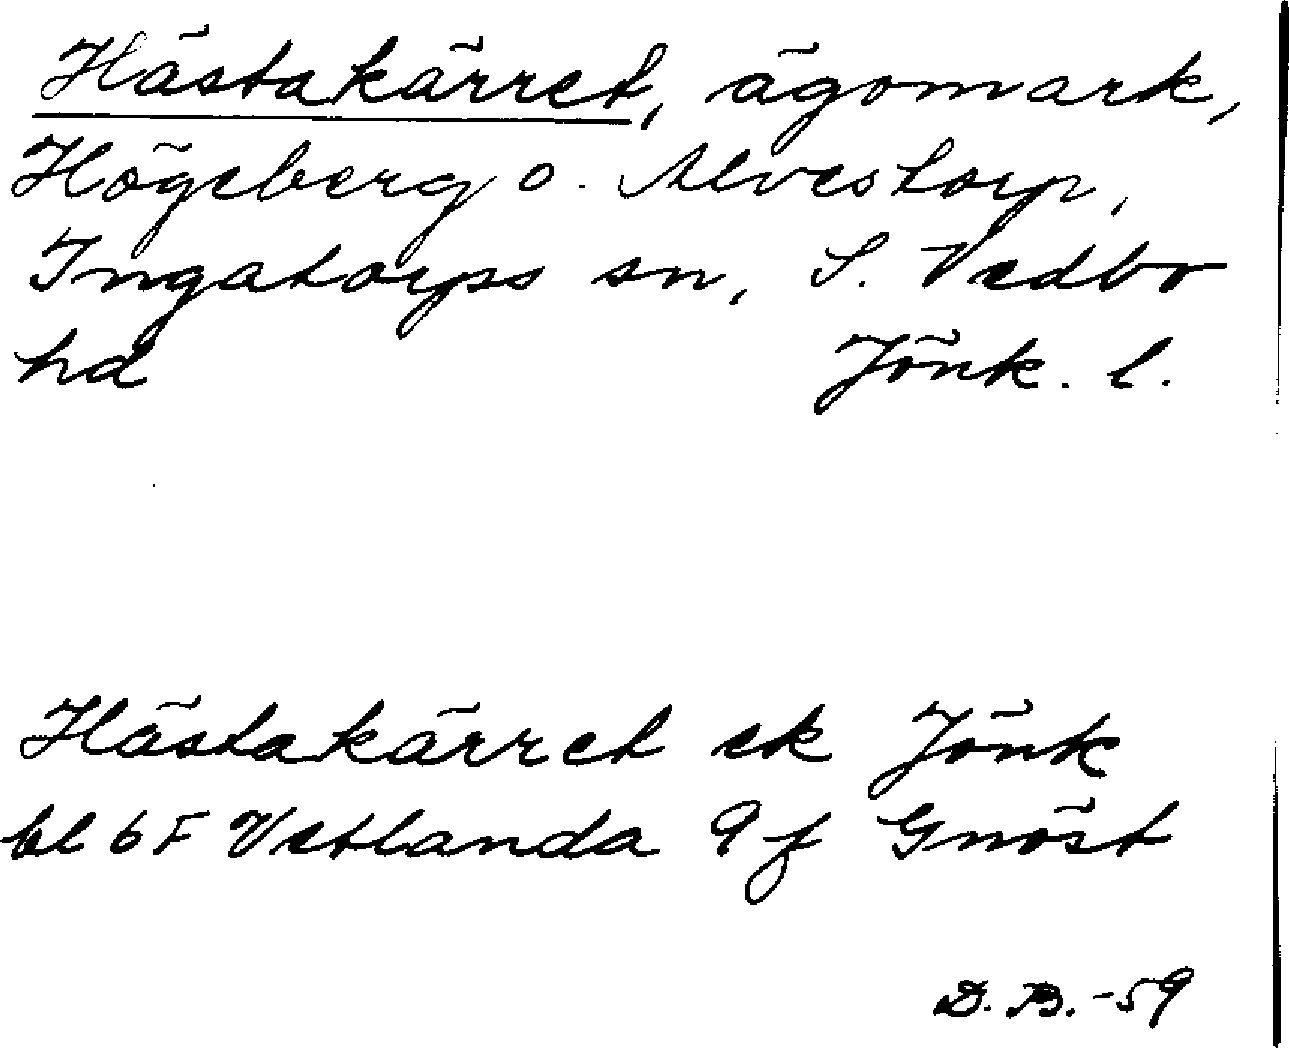 Hästakärret, ägomark,
Högeberg o. Alvestorp,
Ingatorps sn, S. Vedbo
hd Jönk. l.
Hästakärret ek Jönk
bl 6F Vetlanda 9f Gnöst
D. B. -59